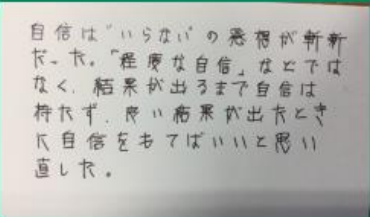 自信は"いらない"の発想が斬新
だった。「程度な自信」などでは
なく、結果が出るまで自信は
持たず、良い結果が出たとき
に自信をもてばいいと思い
直した。